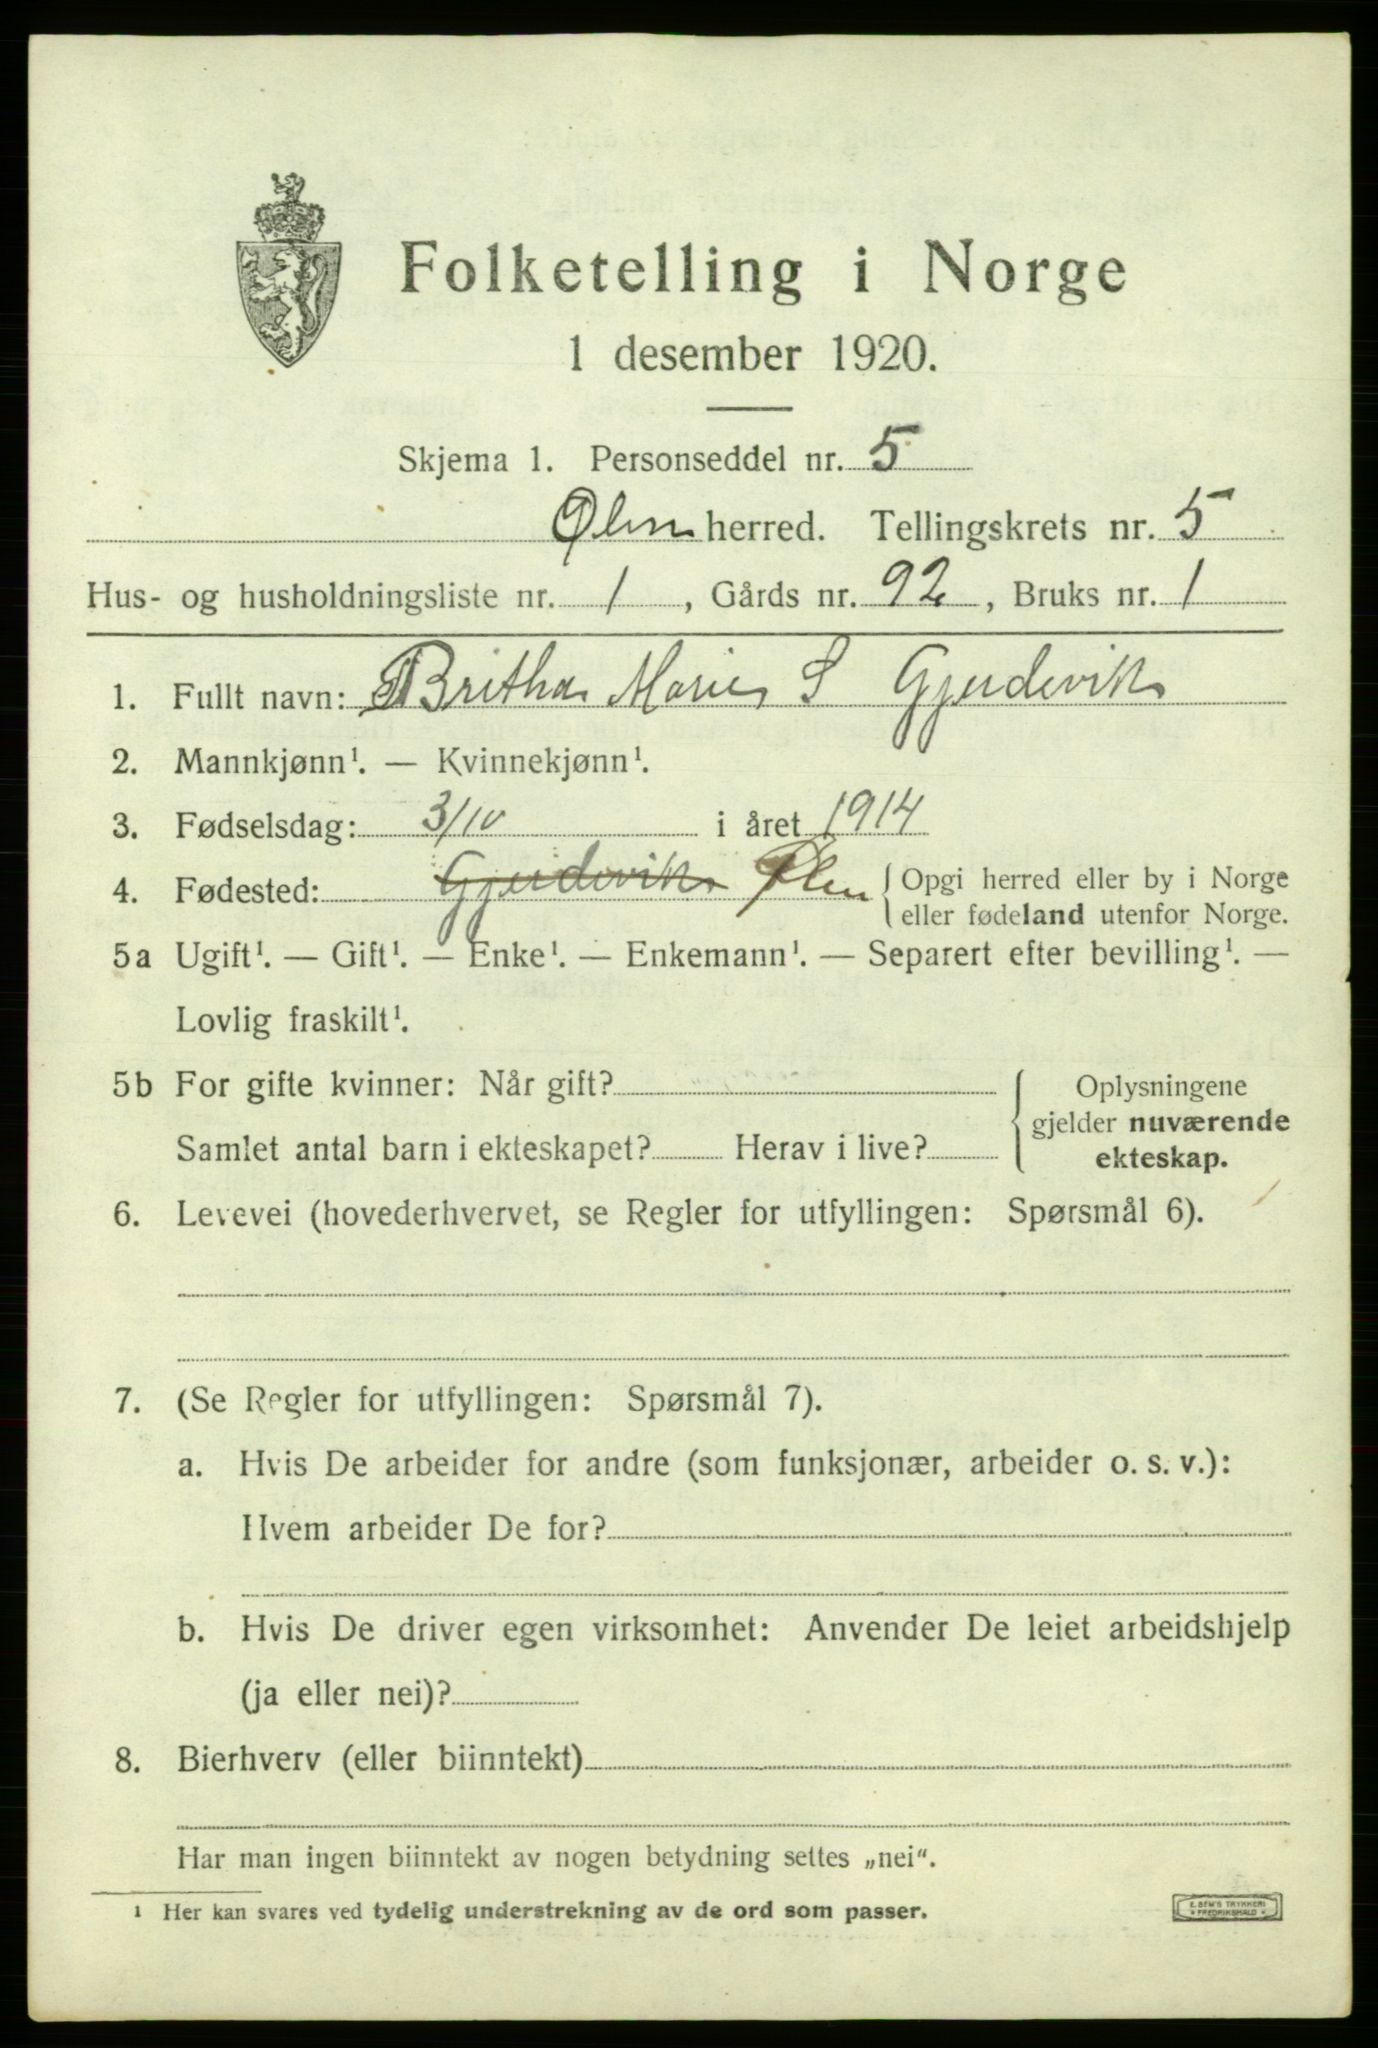 Folketelling i Norge
1 desember 1920.
Skjema 1. Personseddel nr. 5
Ølen herred. Tellingskrets nr. 5
Hus- og husholdningsliste nr. 1, Gårds nr. 92, Bruks nr. 1
1. Fullt navn: Britha Marie S Gjerdevik
2. Mannkjønn¹. — Kvinnekjønn¹.
3. Fødselsdag: 3/10 i året 1914
4. Fødested: Gjerdevik Ølen { Opgi herred eller by i Norge
eller fødeland utenfor Norge.
5a Ugift¹. — Gift¹. — Enke¹. — Enkemann¹. — Separert efter bevilling¹. —
Lovlig fraskilt¹.
5b For gifte kvinner: Når gift?
Samlet antal barn i ekteskapet? Herav i live?
Oplysningene
gjelder nuværende
ekteskap.
6. Levevei (hovederhvervet, se Regler for utfyllingen: Spørsmål 6).
7. (Se Regler for utfyllingen: Spørsmål 7).
a. Hvis De arbeider for andre (som funksjonær, arbeider o. s. v.):
Hvem arbeider De for?
b. Hvis De driver egen virksomhet: Anvender De leiet arbeidshjelp
(ja eller nei)?
8. Bierhverv (eller biinntekt)
Har man ingen biinntekt av nogen betydning settes „nei“.
1 Her kan svares ved tydelig understrekning av de ord som passer.
E. SEM'S TRYKKERI
FREDRIKSHALD